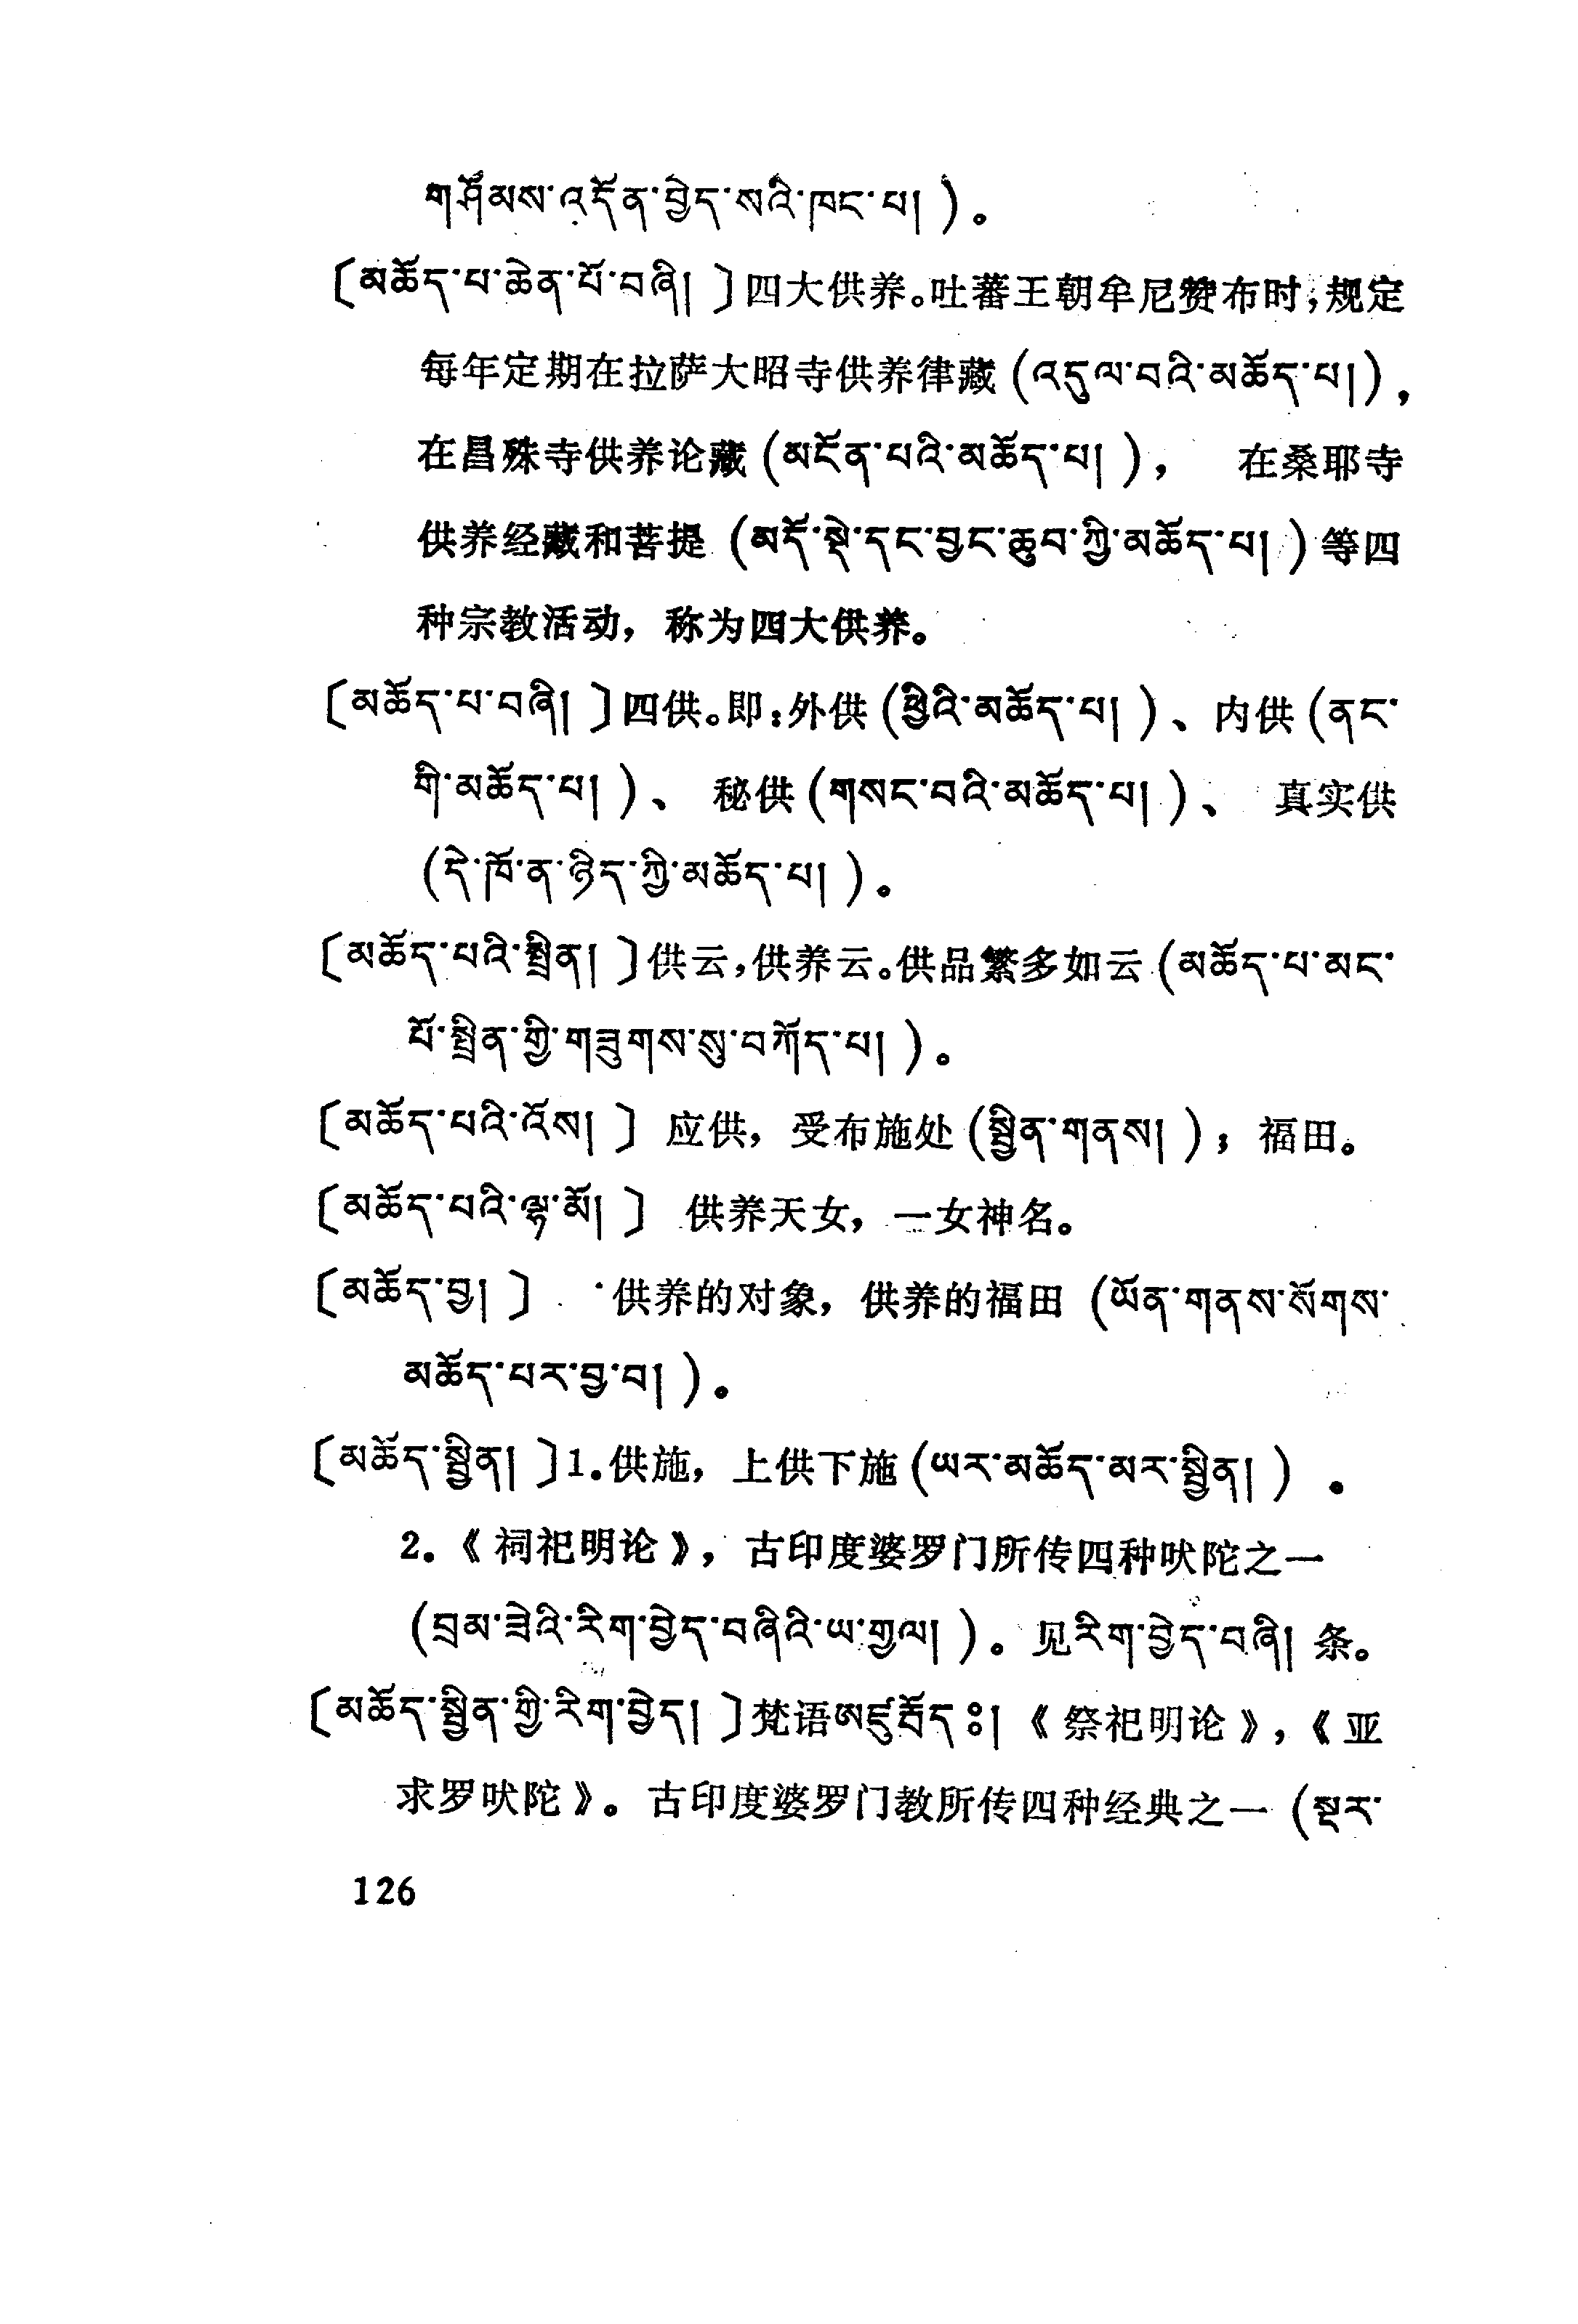 གཤོམས་འདོན་བྱེད་སའི་ཁང་པ། )。
〔མཆོད་པ་ཆེན་པོ་བཞི། 〕四大供养。吐蕃王朝牟尼赞布时,规定
每年定期在拉萨大昭寺供养律藏(འདུལ་བའི་མཆོད་པ།),
在昌殊寺供养论藏(མངོན་པའི་མཆོད་པ། ), 在桑耶寺
供养经藏和菩提 (མདོ་སྡེ་དང་བྱང་ཆུབ་ཀྱི་མཆོད་པ། )等四
种宗教活动, 称为四大供养。
〔མཆོད་པ་བཞི། 〕四供。即:外供(ཕྱིའི་མཆོད་པ། )、内供(ནང་
གི་མཆོད་པ། )、 秘供(གསང་བའི་མཆོད་པ། )、 真实供
(དེ་ཁོ་ན་ཉིད་ཀྱི་མཆོད་པ། )。
〔མཆོད་པའི་སྤྲིན། 〕供云,供养云。供品繁多如云(མཆོད་པ་མང་
པོ་སྤྲིན་གྱི་གཟུགས་སུ་བཀོད་པ། )。
〔མཆོད་པའི་འོས། 〕 应供, 受布施处(སྦྱིན་གནས། ); 福田。
〔མཆོད་པའི་ལྷ་མོ། 〕 供养天女, 一女神名。
〔མཆོད་བྱ། 〕 供养的对象, 供养的福田 (ཡོན་གནས་སོགས་
མཆོད་པར་བྱ་བ། )。
〔མཆོད་སྦྱིན། 〕1.供施, 上供下施(ཡར་མཆོད་མར་སྦྱིན། ) .
2.《祠祀明论》, 古印度婆罗门所传四种吠陀之一
(བྲམ་ཟེའི་རིག་བྱེད་བཞིའི་ཡ་གྱལ། )。见རིག་བྱེད་བཞི། 条。
〔མཆོད་སྦྱིན་གྱི་རིག་བྱེད། 〕梵语 《祭祀明论》,《亚
求罗吠陀》。古印度婆罗门教所传四种经典之一 (སྔར་
126